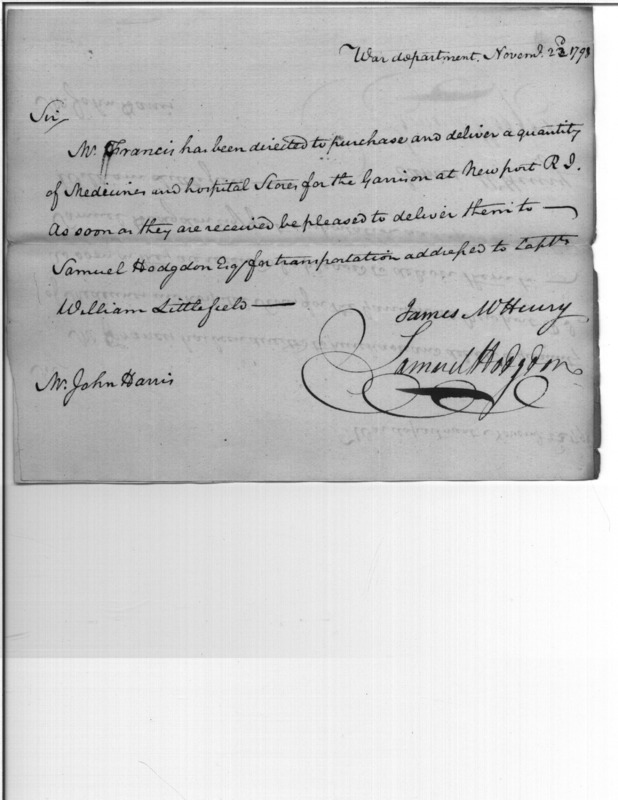 War department. Novemr. 23d 1798
Sir,
Mr. Francis has been directed to purchase and deliver a quantity
of Medicines and hospital Stores for the Garrison at Newport R I.
As soon as they are received be pleased to deliver them to —
Samuel Hodgdon Esq. for transportation addressed to Captn
William Littlefield —
James McHenry
Samuel Hodgdon
Mr. John Harris